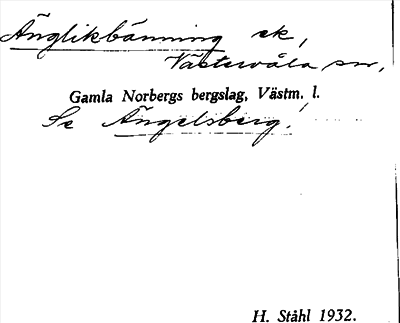 Änglikbänning sk,
Västervåla sn,
Gamla Norbergs bergslag, Västm. l.
Se Ängelsberg!
H. Ståhl 1932.